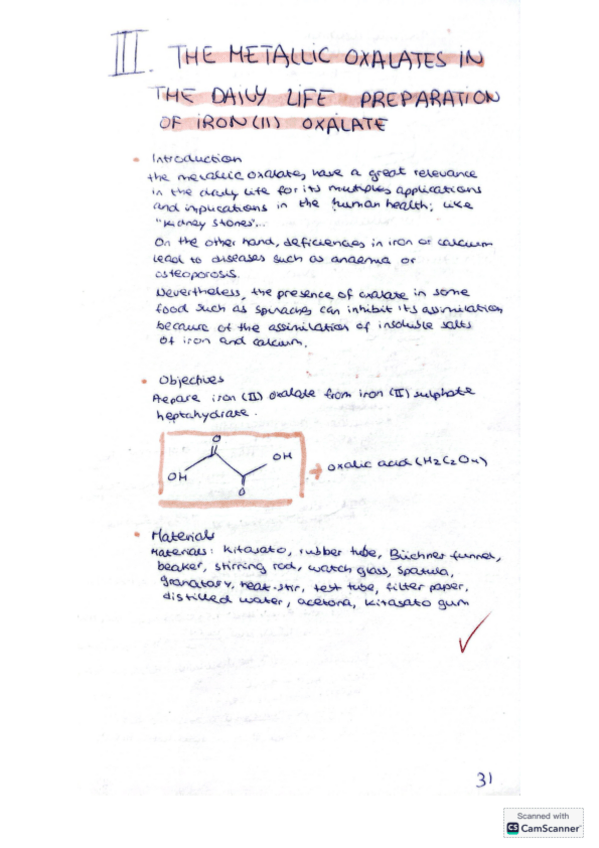 III. THE METALLIC OXALATES IN
THE DAILY LIFE PREPARATION
OF IRON(II) OXALATE
• Introduction
the metallic oxalates, have a great relevance
in the daily life for its multiples applications
and implications in the human health; like
"kidney stones"...
On the other hand, deficiencies in iron or calcium
lead to diseases such as anaemia or
osteoporosis.
Nevertheless, the presence of oxalate in some
food such as spinaches can inhibit its assimilation
because of the assimilation of insoluble salts
of iron and calcium.
• Objectives
Prepare iron (II) oxalate from iron (II) sulphate
heptahydrate.
O
OH
OH
O
→ oxalic acid (H2C2O4)
• Materials
Materials: Kitasato, rubber tube, Büchner funnel,
beaker, stirring rod, watch glass, spatula,
granatary, heat-stir, test tube, filter paper,
distilled water, acetona, Kitasato gum
31
Scanned with
CS CamScanner